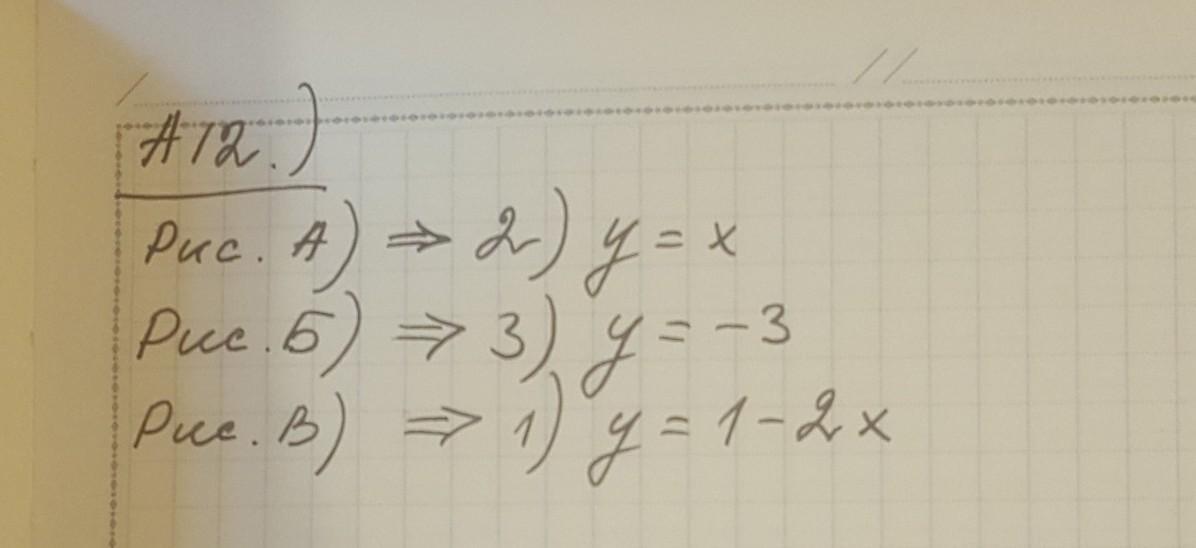 А12.)
Рис. А) ⇒ 2) y = x
Рис. Б) ⇒ 3) y = -3
Рис. В) ⇒ 1) y = 1-2x